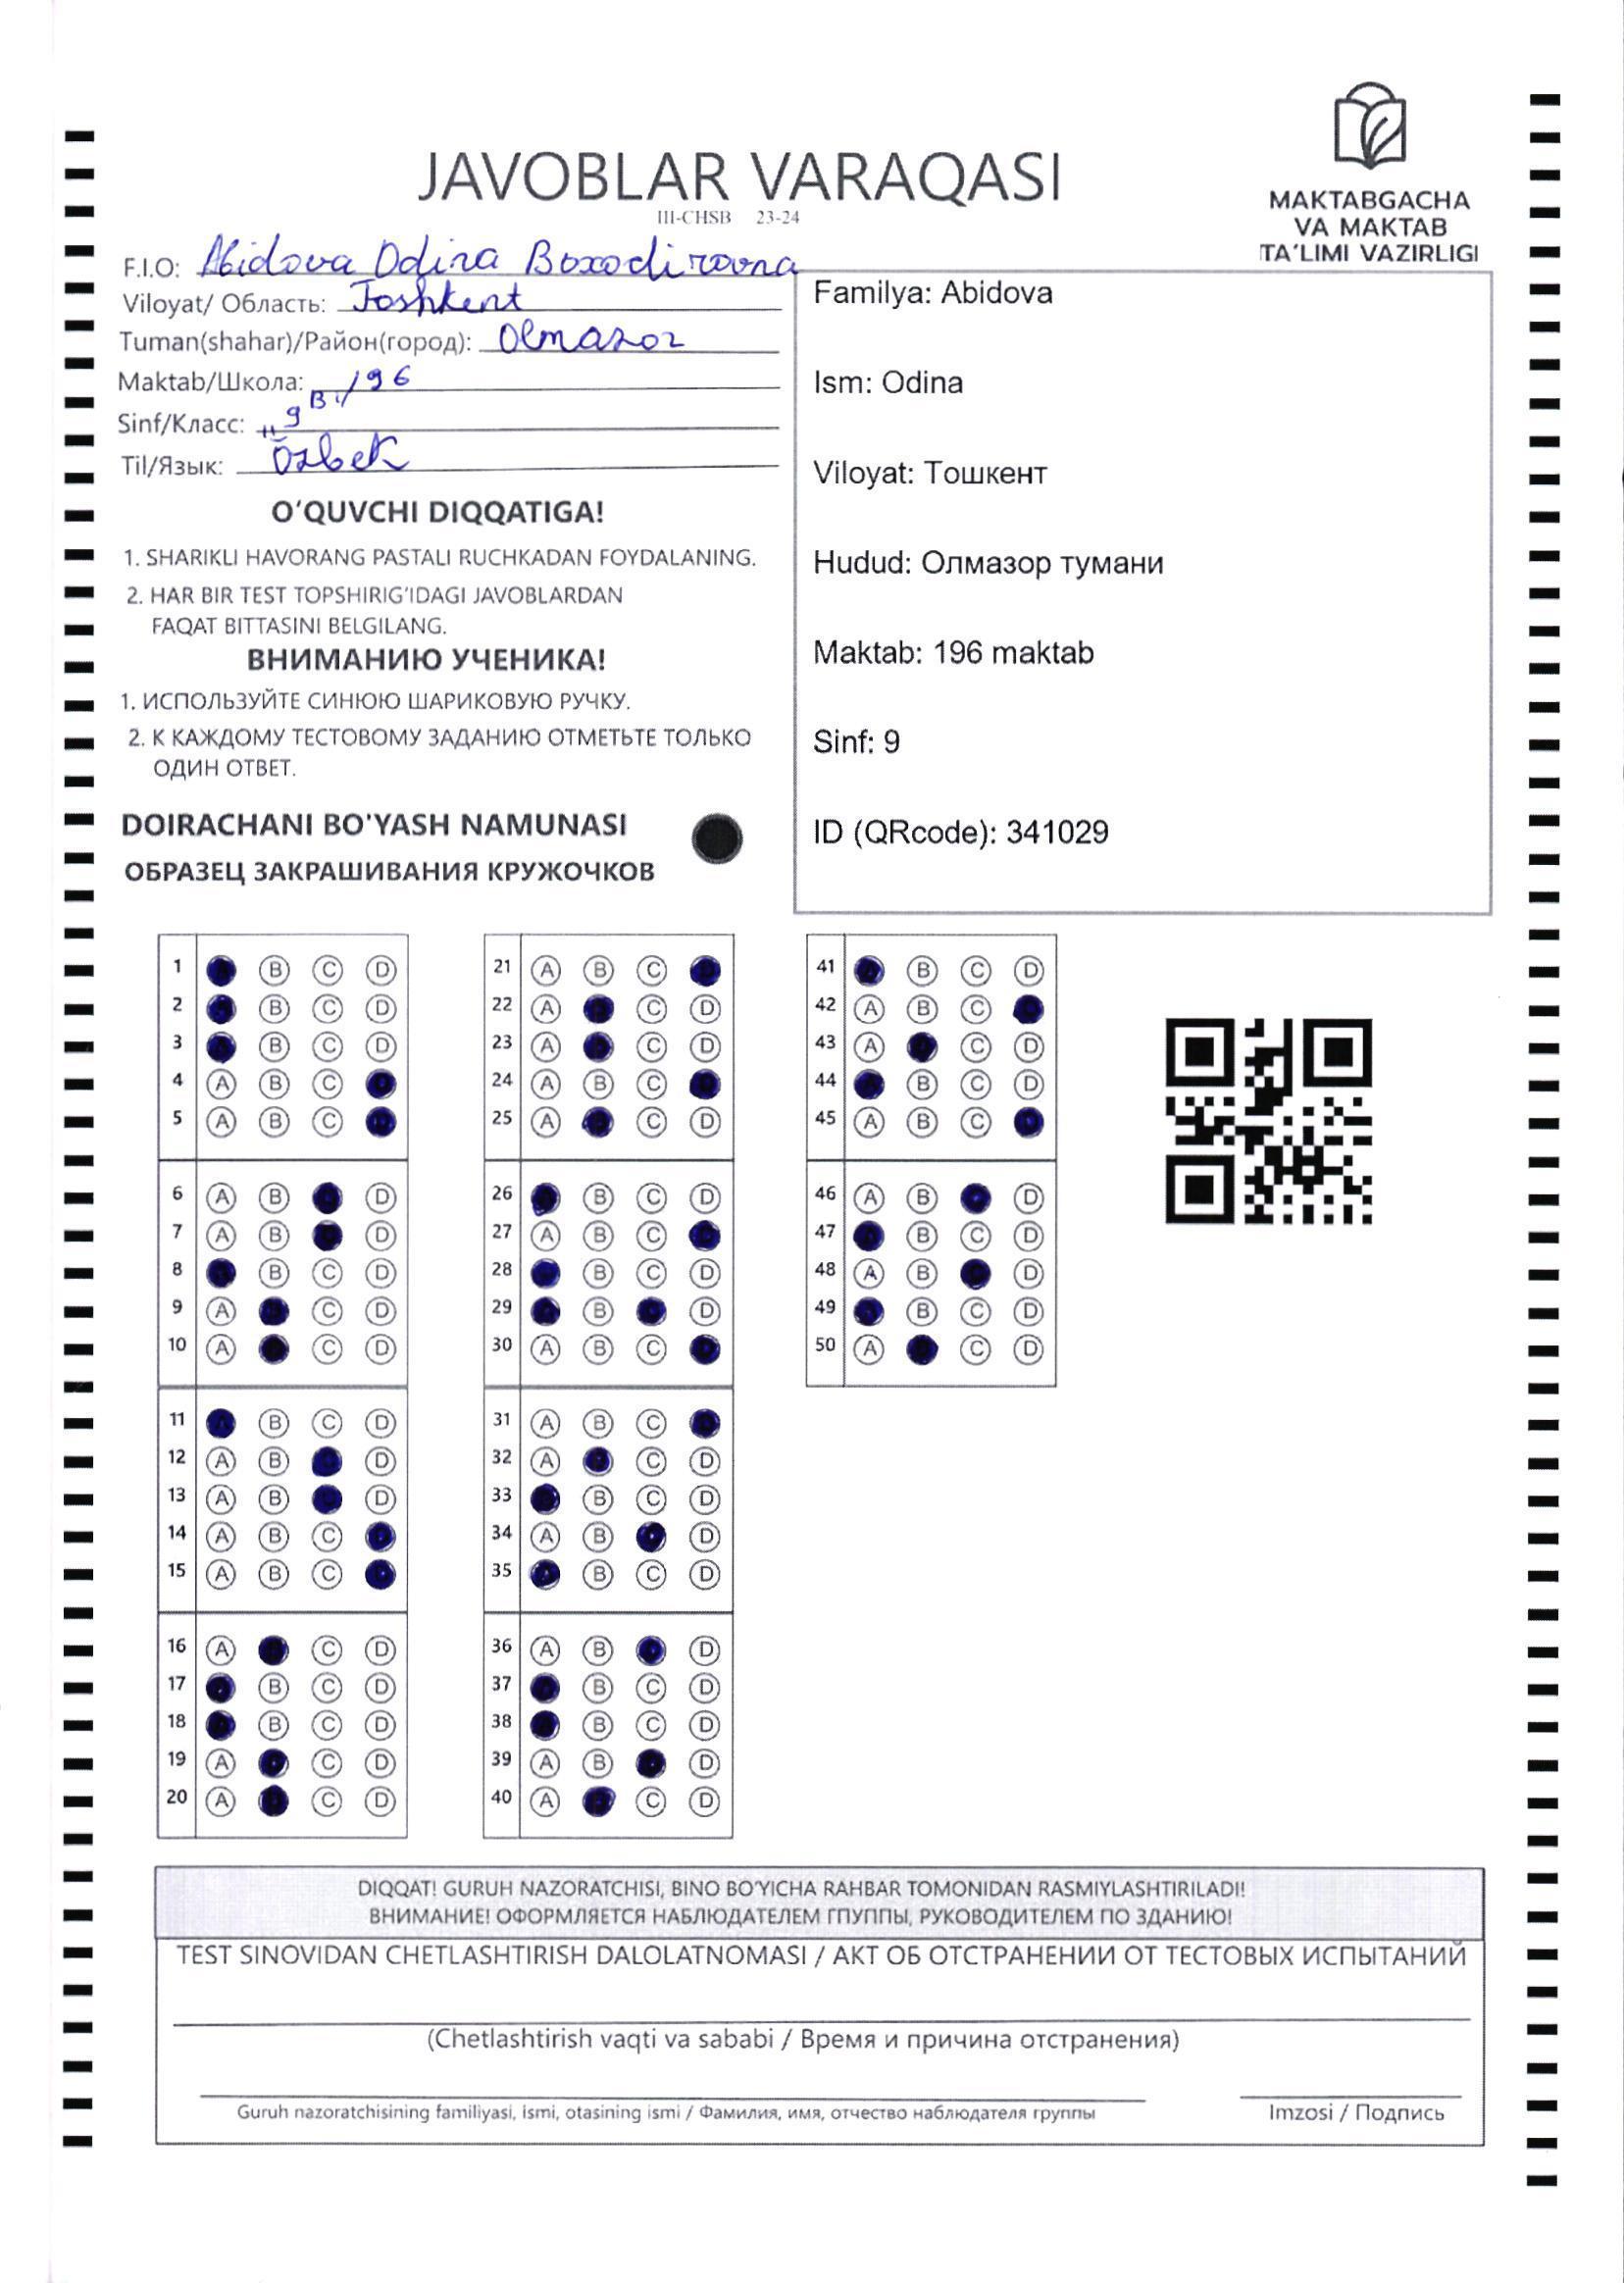 JAVOBLAR VARAQASI
III-CHSB 23-24
MAKTABGACHA
VA MAKTAB
TA'LIMI VAZIRLIGI
F.I.O: Abidova Odina Boxodirovna
Viloyat/ Область: Toshkent
Tuman(shahar)/Район(город): Olmazor
Maktab/Школа: 196
Sinf/Класс: "9 B"
Til/Язык: Özbek
O'QUVCHI DIQQATIGA!
1. SHARIKLI HAVORANG PASTALI RUCHKADAN FOYDALANING.
2. HAR BIR TEST TOPSHIRIG'IDAGI JAVOBLARDAN
FAQAT BITTASINI BELGILANG.
ВНИМАНИЮ УЧЕНИКА!
1. ИСПОЛЬЗУЙТЕ СИНЮЮ ШАРИКОВУЮ РУЧКУ.
2. К КАЖДОМУ ТЕСТОВОМУ ЗАДАНИЮ ОТМЕТЬТЕ ТОЛЬКО
ОДИН ОТВЕТ.
DOIRACHANI BO'YASH NAMUNASI
ОБРАЗЕЦ ЗАКРАШИВАНИЯ КРУЖОЧКОВ
Familya: Abidova
Ism: Odina
Viloyat: Тошкент
Hudud: Олмазор тумани
Maktab: 196 maktab
Sinf: 9
ID (QRcode): 341029
1 B C D
2 B C D
3 B C D
4 A B C
5 A B C
6 A B D
7 A B D
8 B C D
9 A C D
10 A C D
11 B C D
12 A B D
13 A B D
14 A B C
15 A B C
16 A C D
17 B C D
18 B C D
19 A C D
20 A C D
21 A B C
22 A C D
23 A C D
24 A B C
25 A C D
26 B C D
27 A B C
28 B C D
29 B D
30 A B C
31 A B C
32 A C D
33 B C D
34 A B D
35 B C D
36 A B D
37 B C D
38 B C D
39 A B D
40 A C D
41 B C D
42 A B C
43 A C D
44 B C D
45 A B C
46 A B D
47 B C D
48 A B D
49 B C D
50 A C D
DIQQAT! GURUH NAZORATCHISI, BINO BO'YICHA RAHBAR TOMONIDAN RASMIYLASHTIRILADI!
ВНИМАНИЕ! ОФОРМЛЯЕТСЯ НАБЛЮДАТЕЛЕМ ГПУППЫ, РУКОВОДИТЕЛЕМ ПО ЗДАНИЮ!
TEST SINOVIDAN CHETLASHTIRISH DALOLATNOMASI / АКТ ОБ ОТСТРАНЕНИИ ОТ ТЕСТОВЫХ ИСПЫТАНИЙ
(Chetlashtirish vaqti va sababi / Время и причина отстранения)
Guruh nazoratchisining familiyasi, ismi, otasining ismi / Фамилия, имя, отчество наблюдателя группы
Imzosi / Подпись